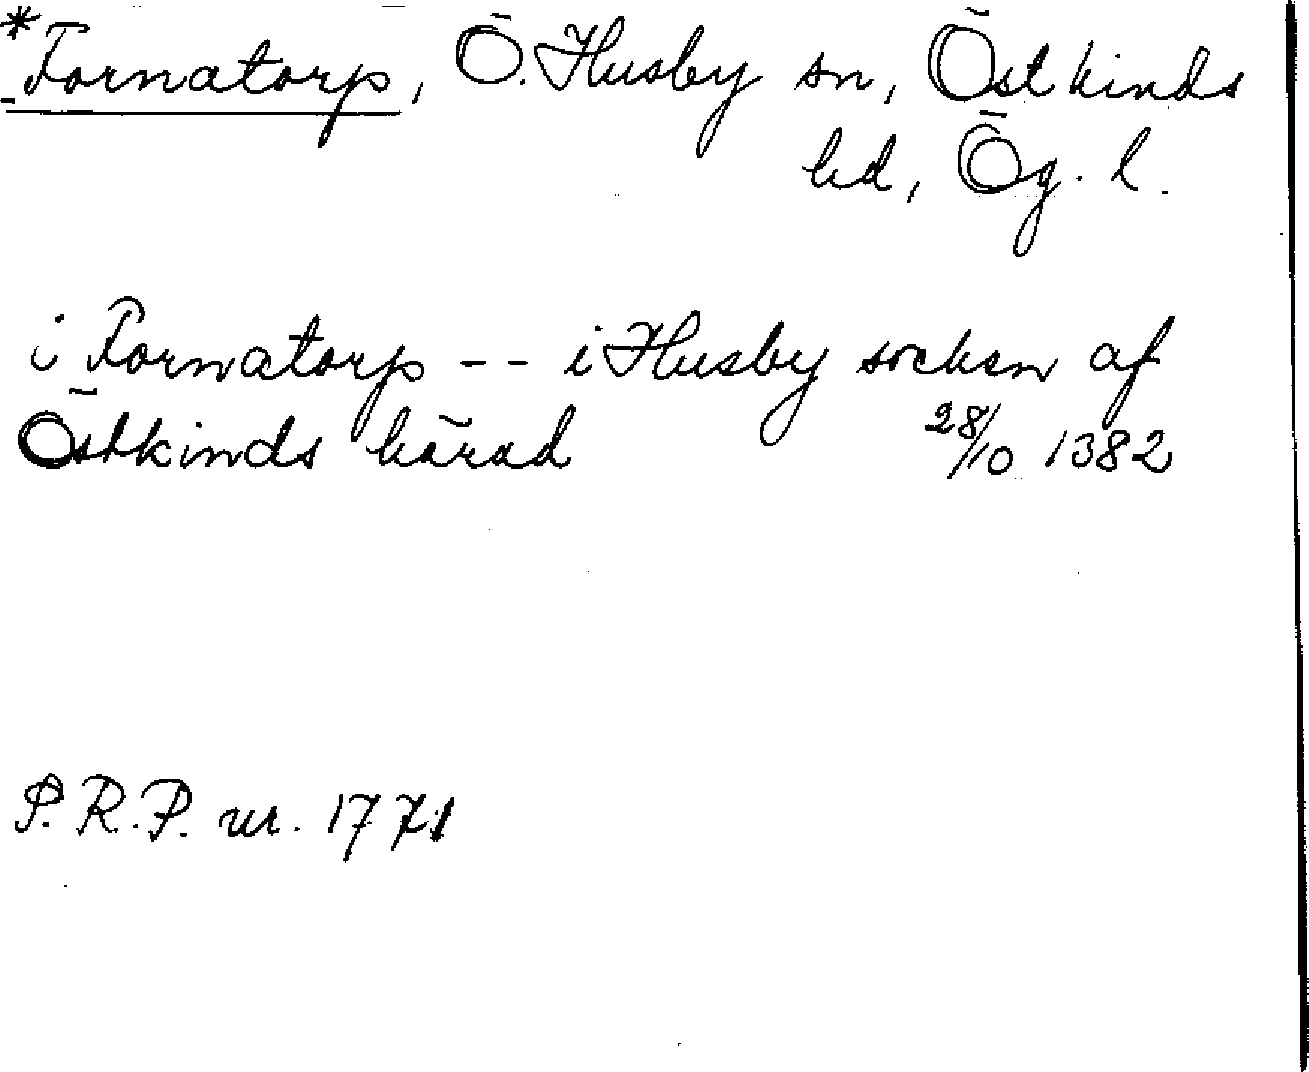 *Fornatorp, Ö. Husby sn, Östkinds
hd, Ög. l.
i Fornatorp -- i Husby socken af
Östkinds härad 28/10 1382
P.R.P. nr. 1771